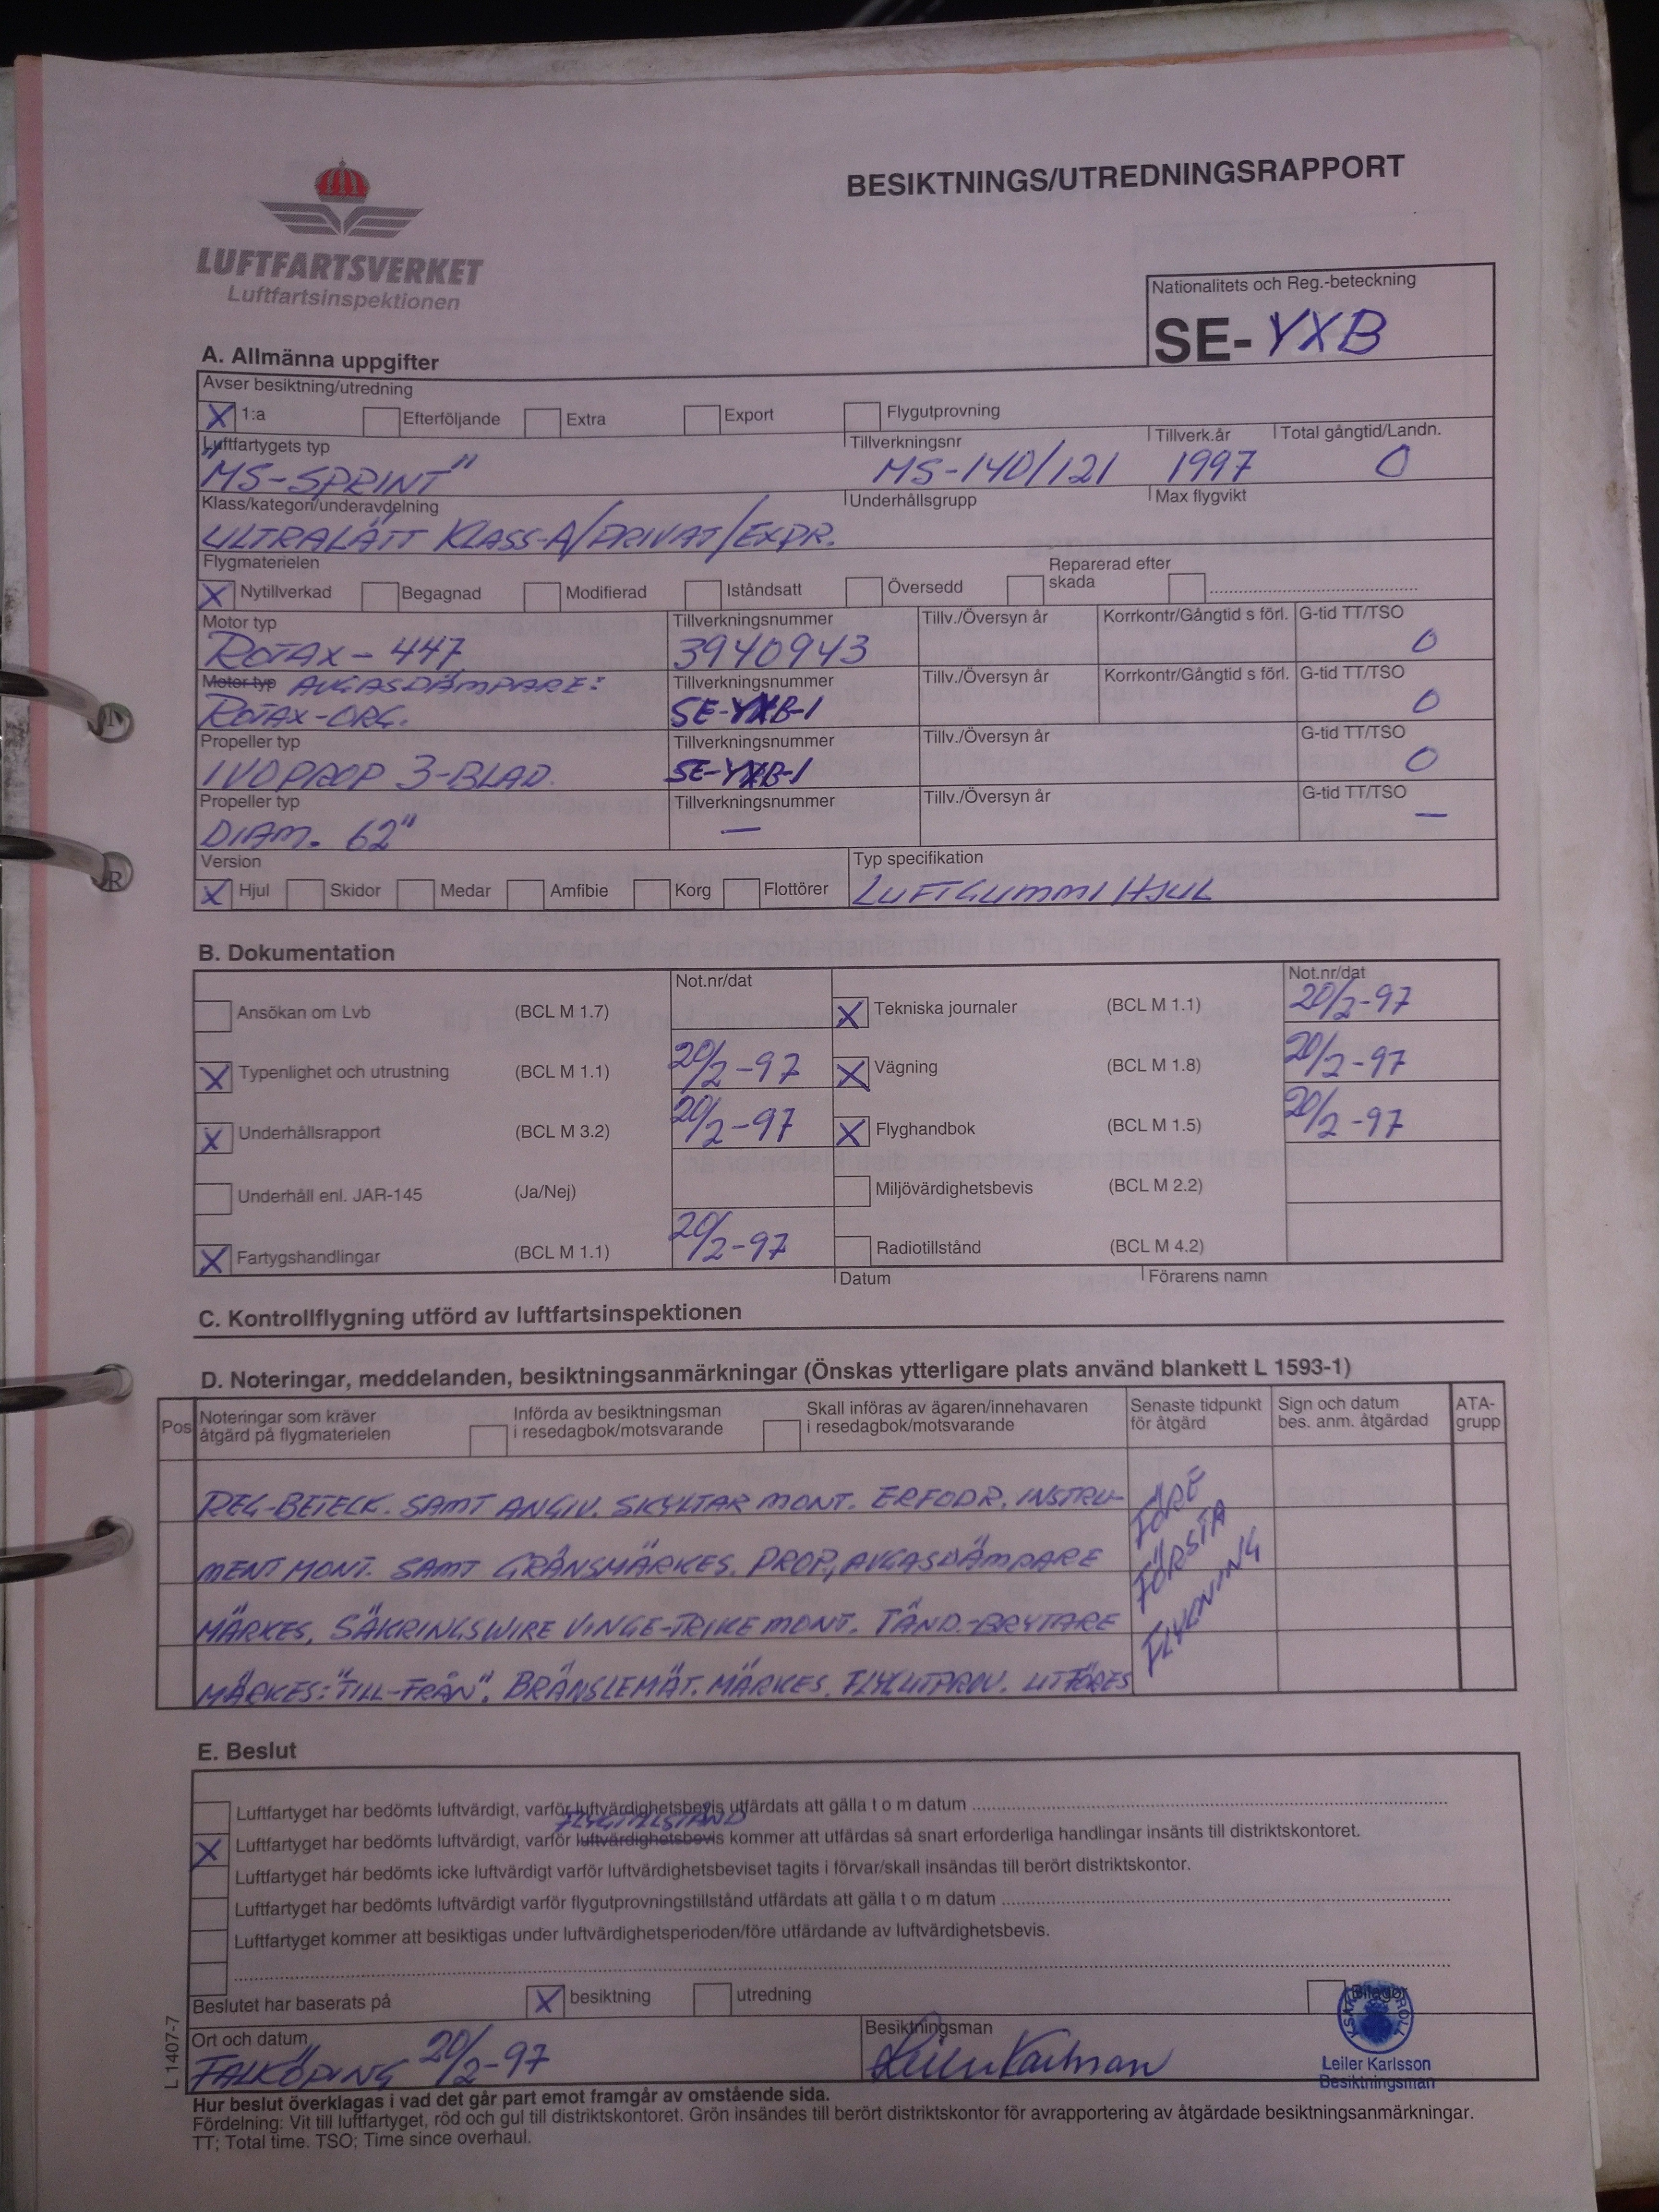 BESIKTNINGS/UTREDNINGSRAPPORT
LUFTFARTSVERKET
Luftfartsinspektionen
Nationalitets och Reg.-beteckning
SE- YXB
A. Allmänna uppgifter
Avser besiktning/utredning
X 1:a Efterföljande Extra Export Flygutprovning
Luftfartygets typ Tillverkningsnr Tillverk.år Total gångtid/Landn.
"MS-SPRINT" MS-140/121 1997 0
Klass/kategori/underavdelning Underhållsgrupp Max flygvikt
ULTRALÄTT KLASS-A/PRIVAT/EXPR.
Flygmaterielen
X Nytillverkad Begagnad Modifierad Iståndsatt Översedd Reparerad efter skada
Motor typ Tillverkningsnummer Tillv./Översyn år Korrkontr/Gångtid s förl. G-tid TT/TSO
ROTAX-447 3940943 0
Motor typ AVGASDÄMPARE: Tillverkningsnummer Tillv./Översyn år Korrkontr/Gångtid s förl. G-tid TT/TSO
ROTAX-ORG. SE-YXB-1 0
Propeller typ Tillverkningsnummer Tillv./Översyn år G-tid TT/TSO
IVOPROP 3-BLAD. SE-YXB-1 0
Propeller typ Tillverkningsnummer Tillv./Översyn år G-tid TT/TSO
DIAM. 62" — —
Version Typ specifikation
X Hjul Skidor Medar Amfibie Korg Flottörer LUFTGUMMI HJUL
B. Dokumentation
Not.nr/dat Not.nr/dat
Ansökan om Lvb (BCL M 1.7) X Tekniska journaler (BCL M 1.1) 20/2-97
X Typenlighet och utrustning (BCL M 1.1) 20/2-97 X Vägning (BCL M 1.8) 20/2-97
X Underhållsrapport (BCL M 3.2) 20/2-97 X Flyghandbok (BCL M 1.5) 20/2-97
Underhåll enl. JAR-145 (Ja/Nej) Miljövärdighetsbevis (BCL M 2.2)
X Fartygshandlingar (BCL M 1.1) 20/2-97 Radiotillstånd (BCL M 4.2)
Datum Förarens namn
C. Kontrollflygning utförd av luftfartsinspektionen
D. Noteringar, meddelanden, besiktningsanmärkningar (Önskas ytterligare plats använd blankett L 1593-1)
Pos Noteringar som kräver åtgärd på flygmaterielen Införda av besiktningsman i resedagbok/motsvarande Skall införas av ägaren/innehavaren i resedagbok/motsvarande Senaste tidpunkt för åtgärd Sign och datum bes. anm. åtgärdad ATA-grupp
REG-BETECK. SAMT ANGIV. SKYLTAR MONT. ERFODR. INSTRU-
MENT MONT. SAMT GRÄNSMÄRKES. PROP., AVGASDÄMPARE
MÄRKES, SÄKRINGSWIRE VINGE-TRIKE MONT. TÄND.-BRYTARE
MÄRKES: "TILL-FRÅN". BRÄNSLEMÄT. MÄRKES. FLYGUTPROV. UTFÖRES
FÖRE
FÖRSTA
FLYGNING
E. Beslut
Luftfartyget har bedömts luftvärdigt, varför luftvärdighetsbevis utfärdats att gälla t o m datum
FLYGTILLSTÅND
X Luftfartyget har bedömts luftvärdigt, varför luftvärdighetsbevis kommer att utfärdas så snart erforderliga handlingar insänts till distriktskontoret.
Luftfartyget har bedömts icke luftvärdigt varför luftvärdighetsbeviset tagits i förvar/skall insändas till berört distriktskontor.
Luftfartyget har bedömts luftvärdigt varför flygutprovningstillstånd utfärdats att gälla t o m datum
Luftfartyget kommer att besiktigas under luftvärdighetsperioden/före utfärdande av luftvärdighetsbevis.
Beslutet har baserats på X besiktning utredning Bilagor
Ort och datum Besiktningsman
FALKÖPING 20/2-97 Leiler Karlsson
Leiler Karlsson
Besiktningsman
L 1407-7
Hur beslut överklagas i vad det går part emot framgår av omstående sida.
Fördelning: Vit till luftfartyget, röd och gul till distriktskontoret. Grön insändes till berört distriktskontor för avrapportering av åtgärdade besiktningsanmärkningar.
TT; Total time. TSO; Time since overhaul.